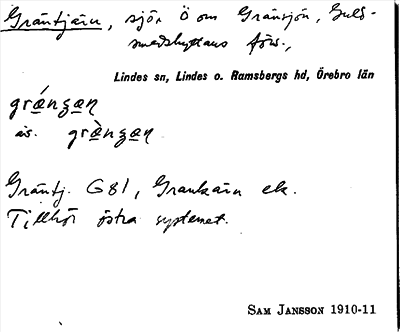 Gräntjärn, sjön Ö om Gränsjön, Guld-
smedshyttans förs.,
Lindes sn, Lindes o. Ramsbergs hd, Örebro län
gränʒan
äs. grànʒan
Gräntj. G81, Grankärn ek.
Tillhör östra systemet.
SAM JANSSON 1910-11